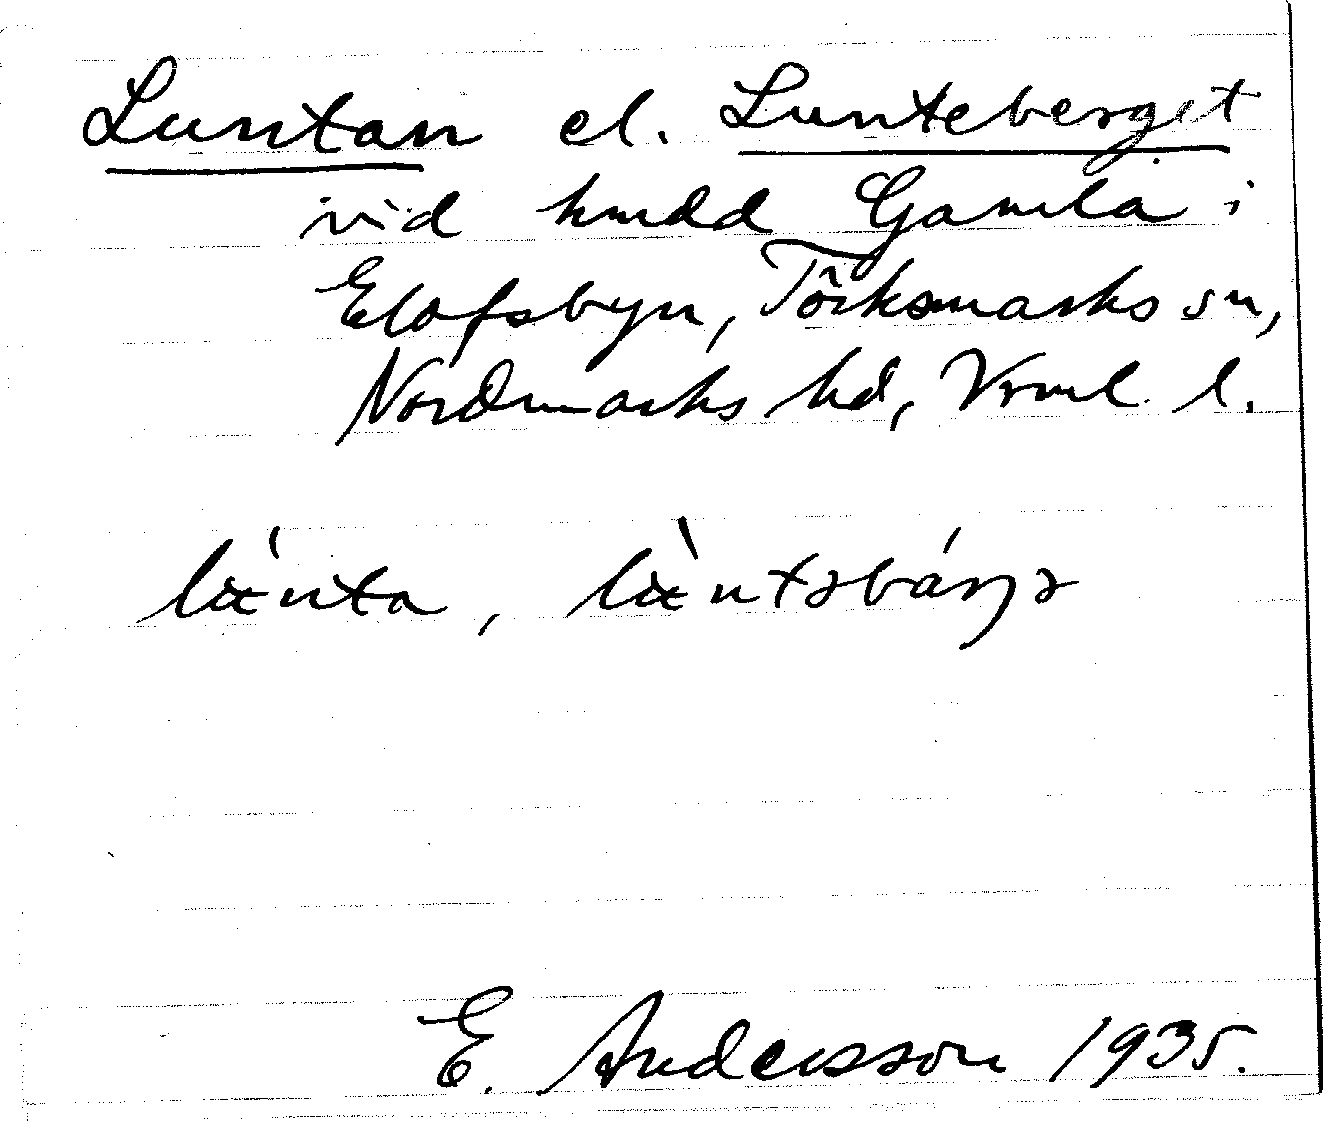 Luntan el. Lunteberget
vid hmdd Gamla i
Elofsbyn, Töcksmarks sn,
Nordmarks hd, Vrml. l.
E. Andersson 1935.